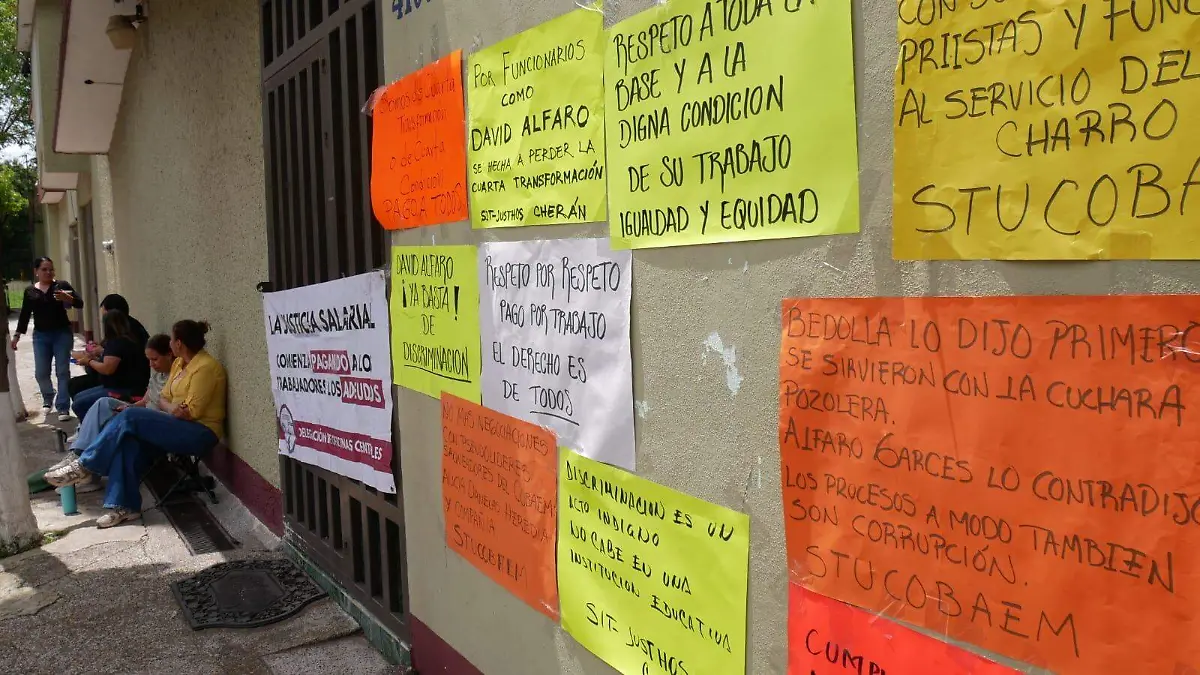 SOMOS LA CUARTA
TRANSFORMACION
O DE CUARTA
CONDICION
PAGO A TODOS
POR FUNCIONARIOS
COMO
DAVID ALFARO
SE HECHA A PERDER LA
CUARTA TRANSFORMACIÓN
SIT-JUSTHOS CHERÁN
RESPETO A TODA LA
BASE Y A LA
DIGNA CONDICION
DE SU TRABAJO
IGUALDAD Y EQUIDAD
PRIISTAS Y
AL SERVICIO DEL
CHARRO
STUCOBAEM
LA JUSTICIA SALARIAL
COMIENZA PAGANDO A LO
TRABAJADORES LOS ADEUDOS
DELEGACIÓN OFICINAS CENTRALES
DAVID ALFARO
¡YA BASTA!
DE
DISCRIMINACION
RESPETO POR RESPETO
PAGO POR TRABAJO
EL DERECHO ES
DE TODOS
NO MAS NEGOCIACIONES
CON PSEUDOLIDERES
SAQUEADORES DEL COBAEM:
Y COMPAÑIA
STUCOBAEM
DISCRIMINACION ES UN
ACTO INDIGNO
NO CABE EN UNA
INSTITUCION EDUCATIVA
SIT-JUSTHOS
BEDOLLA LO DIJO PRIMERO
SE SIRVIERON CON LA CUCHARA
POZOLERA.
ALFARO GARCES LO CONTRADIJO
LOS PROCESOS A MODO TAMBIEN
SON CORRUPCIÓN.
STUCOBAEM